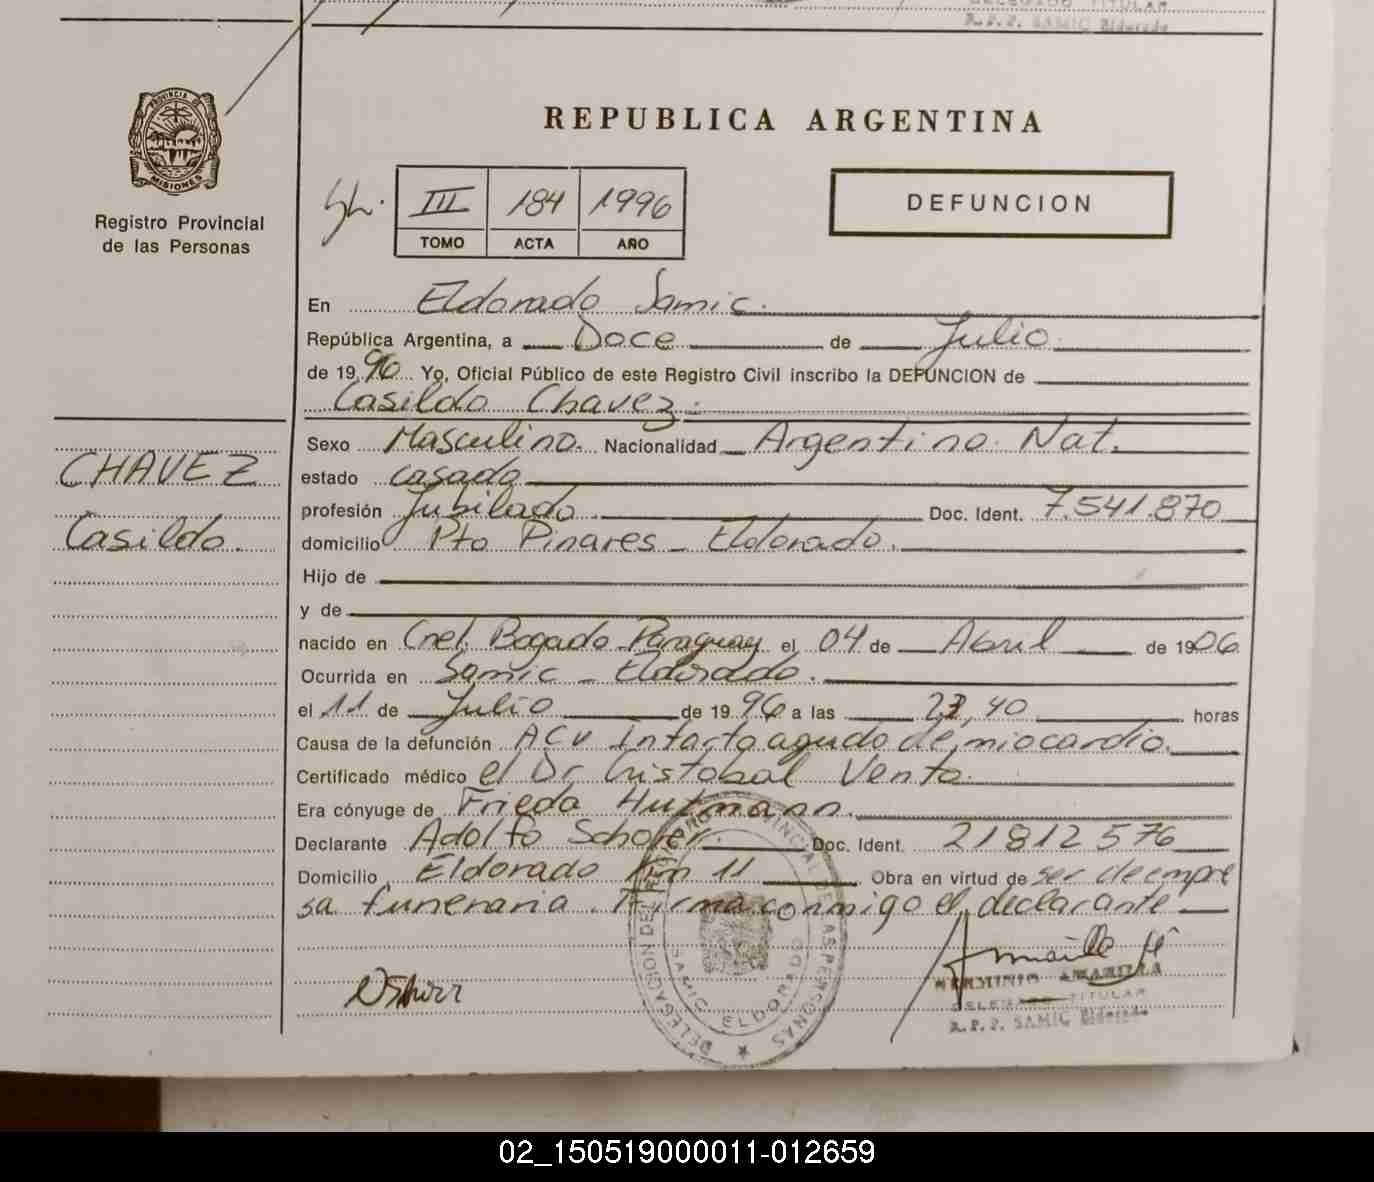 DELEGADO TITULAR
R.P.P. SAMIC Eldorado
PROVINCIA DE
MISIONES
Registro Provincial
de las Personas
REPUBLICA ARGENTINA
III 184 1996
TOMO ACTA AÑO
DEFUNCION
En Eldorado Samic.
República Argentina, a Doce de Julio
de 1996 Yo, Oficial Público de este Registro Civil inscribo la DEFUNCION de
Casildo Chavez.
Sexo Masculino. Nacionalidad Argentino. Nat.
CHAVEZ
estado casado
profesión Jubilado Doc. Ident. 7.541.870
Casildo.
domicilio Pto Pinares - Eldorado.
Hijo de
y de
nacido en Cnel. Bogado Paraguay el 04 de Abril de 1906
Ocurrida en Samic - Eldorado.
el 11 de Julio de 1996 a las 23,40 horas
Causa de la defunción ACV Infarto agudo de miocardio.
Certificado médico el Dr Cristobal Vento.
Era cónyuge de Frieda Hutmann.
Declarante Adolfo Schorer. Doc. Ident. 21812576
Domicilio Eldorado Km 11 Obra en virtud de ser de empre
sa funeraria. Firma conmigo el declarante
HERMINIO AMARILLA
DELEGADO TITULAR
R.P.P. SAMIC Eldorado
DELEGACION DEL REGISTRO PROVINCIAL DE LAS PERSONAS
SAMIC ELDORADO
02_150519000011-012659